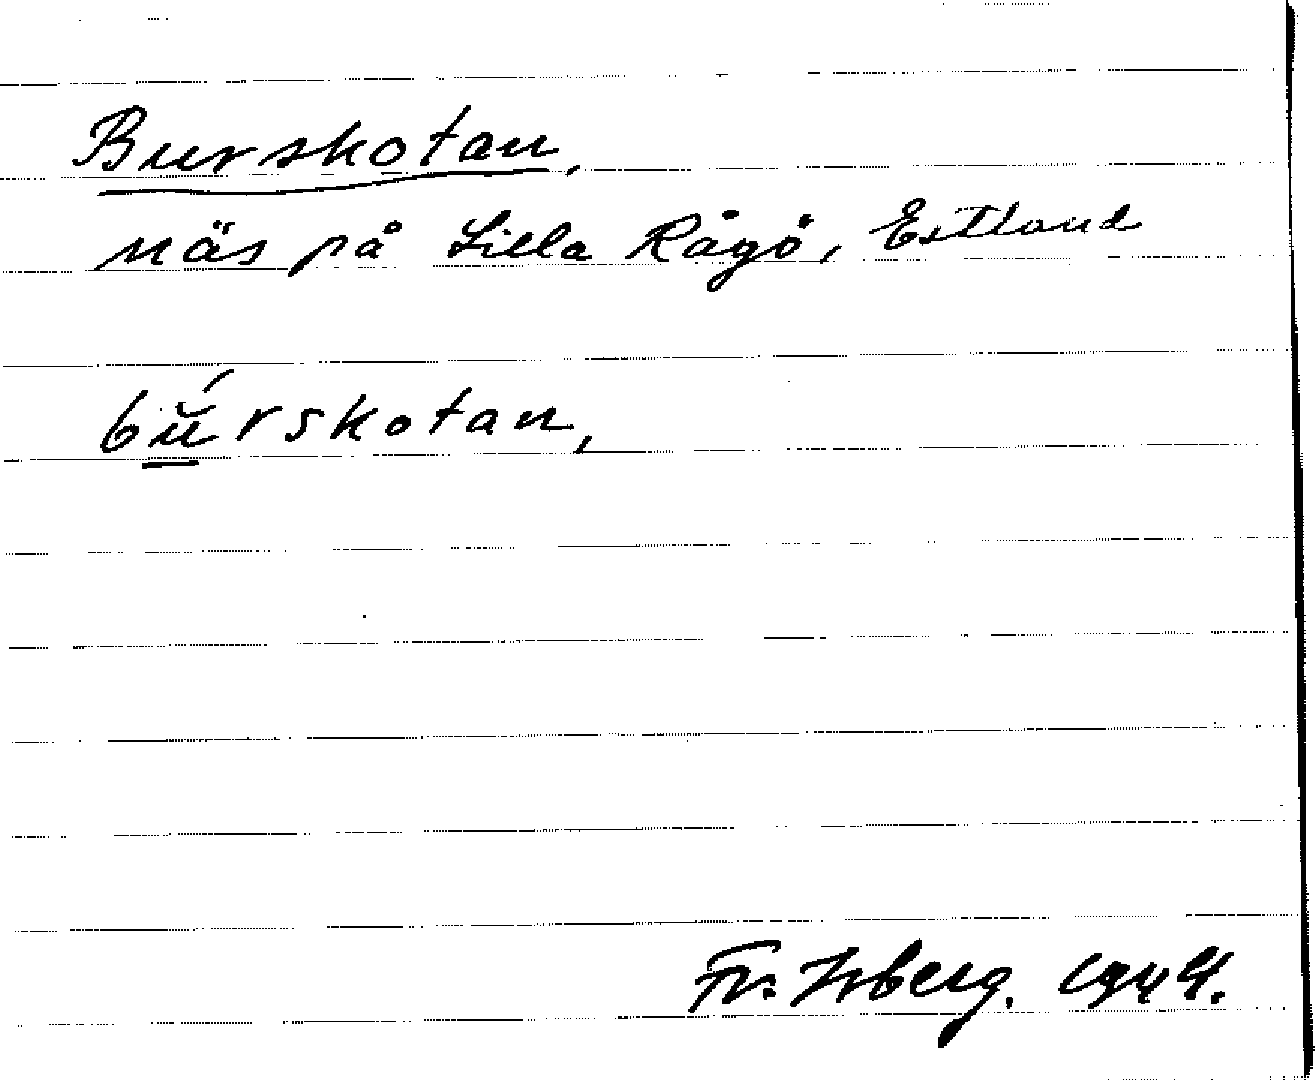 Burskotan,
näs på Lilla Rågö, Estland
bŭ́rskotan,
Fr. Isberg. 1944.